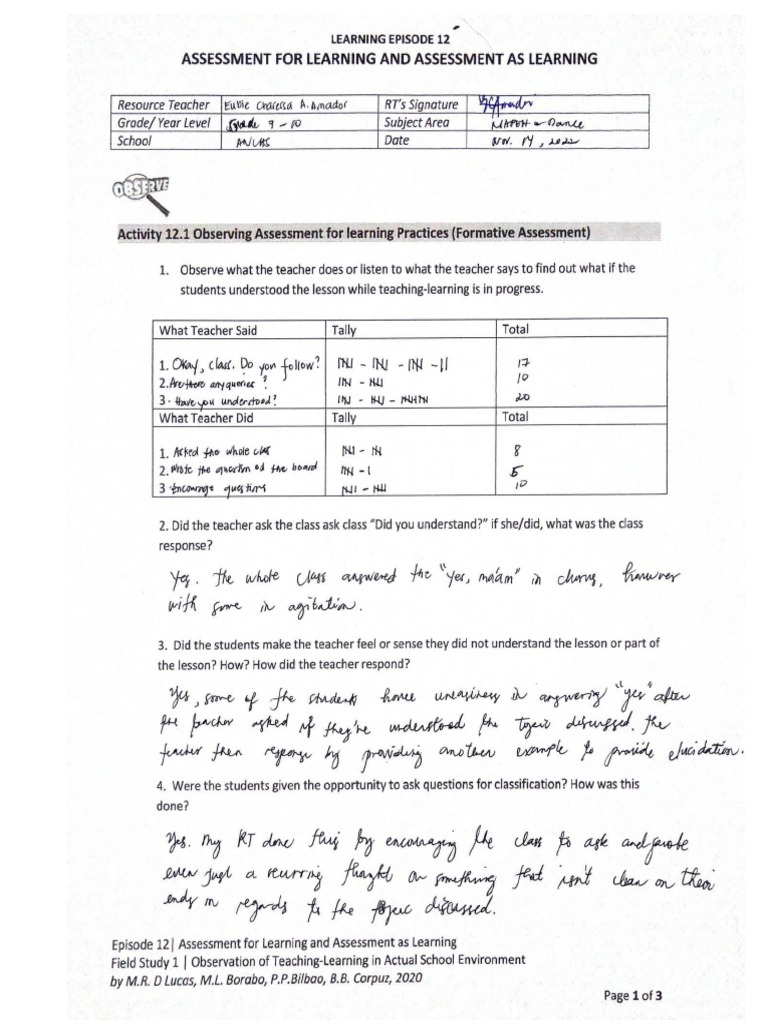 LEARNING EPISODE 12
ASSESSMENT FOR LEARNING AND ASSESSMENT AS LEARNING
Resource Teacher Eubie Charessa A. Amador RT's Signature
Grade/ Year Level Grade 7 - 10 Subject Area MAPEH - Dance
School ANCHS Date Nov. 14, 2022
OBSERVE
Activity 12.1 Observing Assessment for learning Practices (Formative Assessment)
1. Observe what the teacher does or listen to what the teacher says to find out what if the
students understood the lesson while teaching-learning is in progress.
What Teacher Said Tally Total
1. Okay, class. Do you follow? 17
2. Are there any queries? 10
3. Have you understood? 20
What Teacher Did Tally Total
1. Asked the whole class 8
2. Wrote the question od the board 5
3 Encourage questions 10
2. Did the teacher ask the class ask class “Did you understand?” if she/did, what was the class
response?
Yes. The whole class answered the "yes, ma'am" in chorus, however
with some in agitation.
3. Did the students make the teacher feel or sense they did not understand the lesson or part of
the lesson? How? How did the teacher respond?
Yes, some of the students have uneasiness in answering "yes" after
the teacher asked if they're understood the topic discussed. The
teacher then response by providing another example to provide elucidation.
4. Were the students given the opportunity to ask questions for classification? How was this
done?
Yes. My RT done this by encouraging the class to ask and
even just a recurring thought or something that isn't clear on their
ends in regards to the topic discussed.
Episode 12| Assessment for Learning and Assessment as Learning
Field Study 1 | Observation of Teaching-Learning in Actual School Environment
by M.R. D Lucas, M.L. Borabo, P.P.Bilbao, B.B. Corpuz, 2020
Page 1 of 3